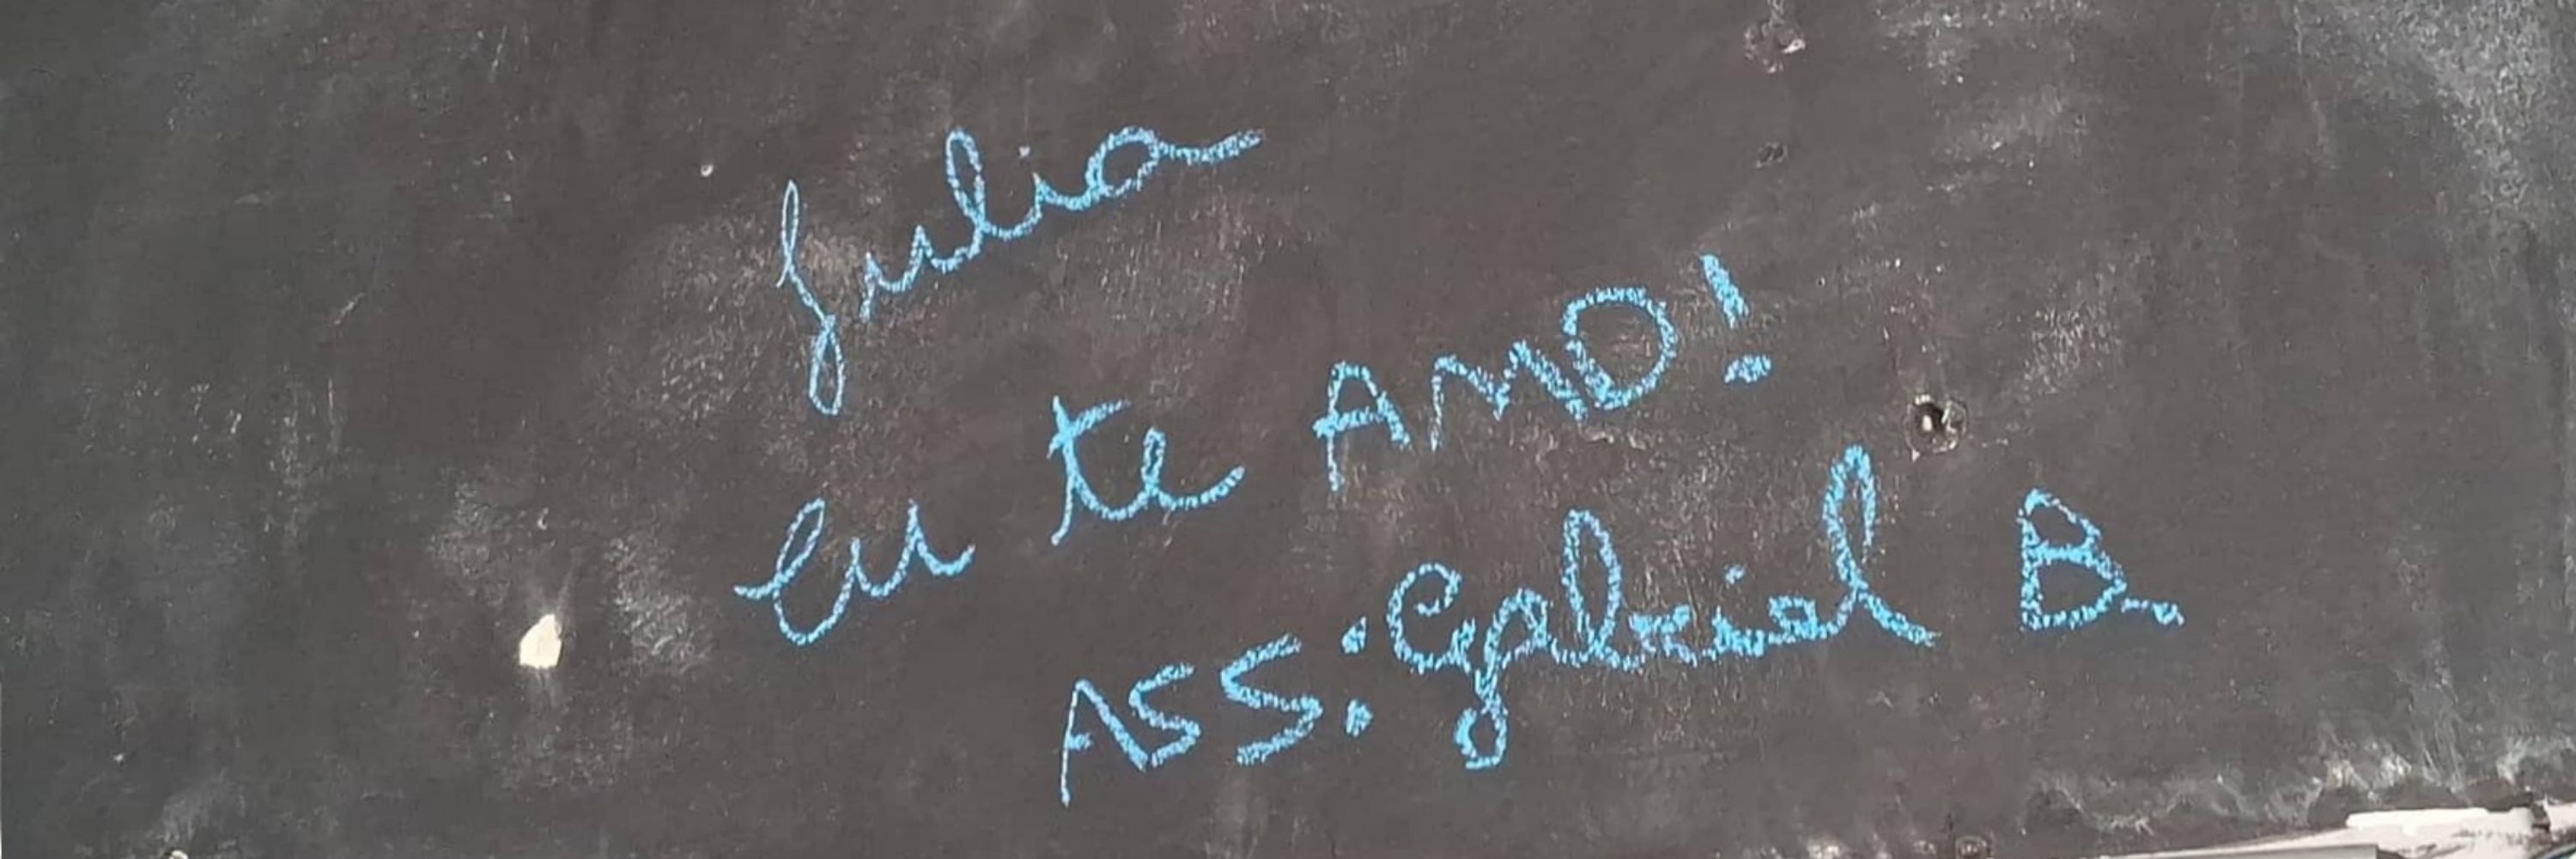 Julia
Eu te AMO!
ASS: Gabriel B.